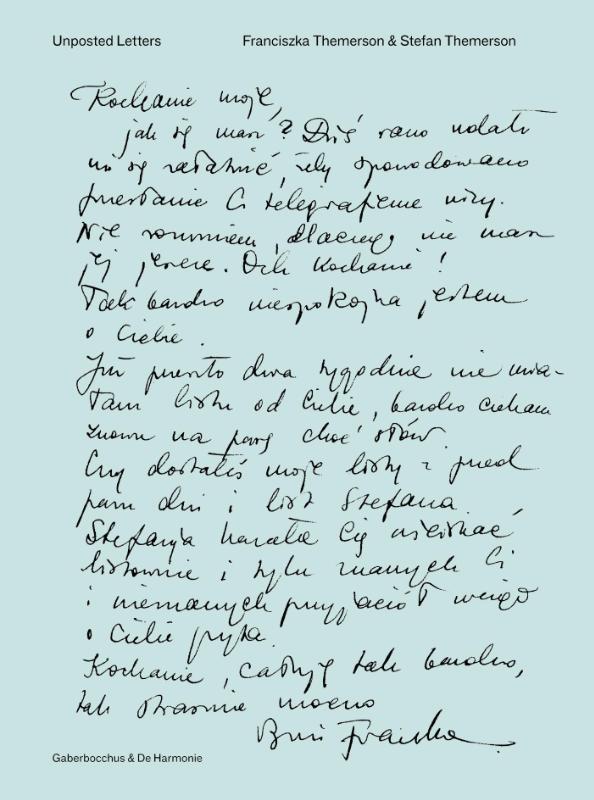 Unposted Letters Franciszka Themerson & Stefan Themerson
Kochanie moje,
jak się masz? Dziś rano udało
mi się załatwić, żeby spowodowano
przesłanie Ci telegraficzne wizy.
Nie rozumiem, dlaczego nie masz
jej jeszcze. Och Kochanie!
Tak bardzo niespokojna jestem
o Ciebie.
Już przeszło dwa tygodnie nie mia-
łam listu od Ciebie, bardzo czekam
znowu na parę choć słów.
Czy dostałeś moje listy z przed
paru dni i list Stefana.
Stefania kazała Cię uściskać
listownie i tylu znanych Ci
i nieznanych przyjaciół wciąż
o Ciebie pyta.
Kochanie, całuję tak bardzo,
tak strasznie mocno
Franka
Gaberbocchus & De Harmonie